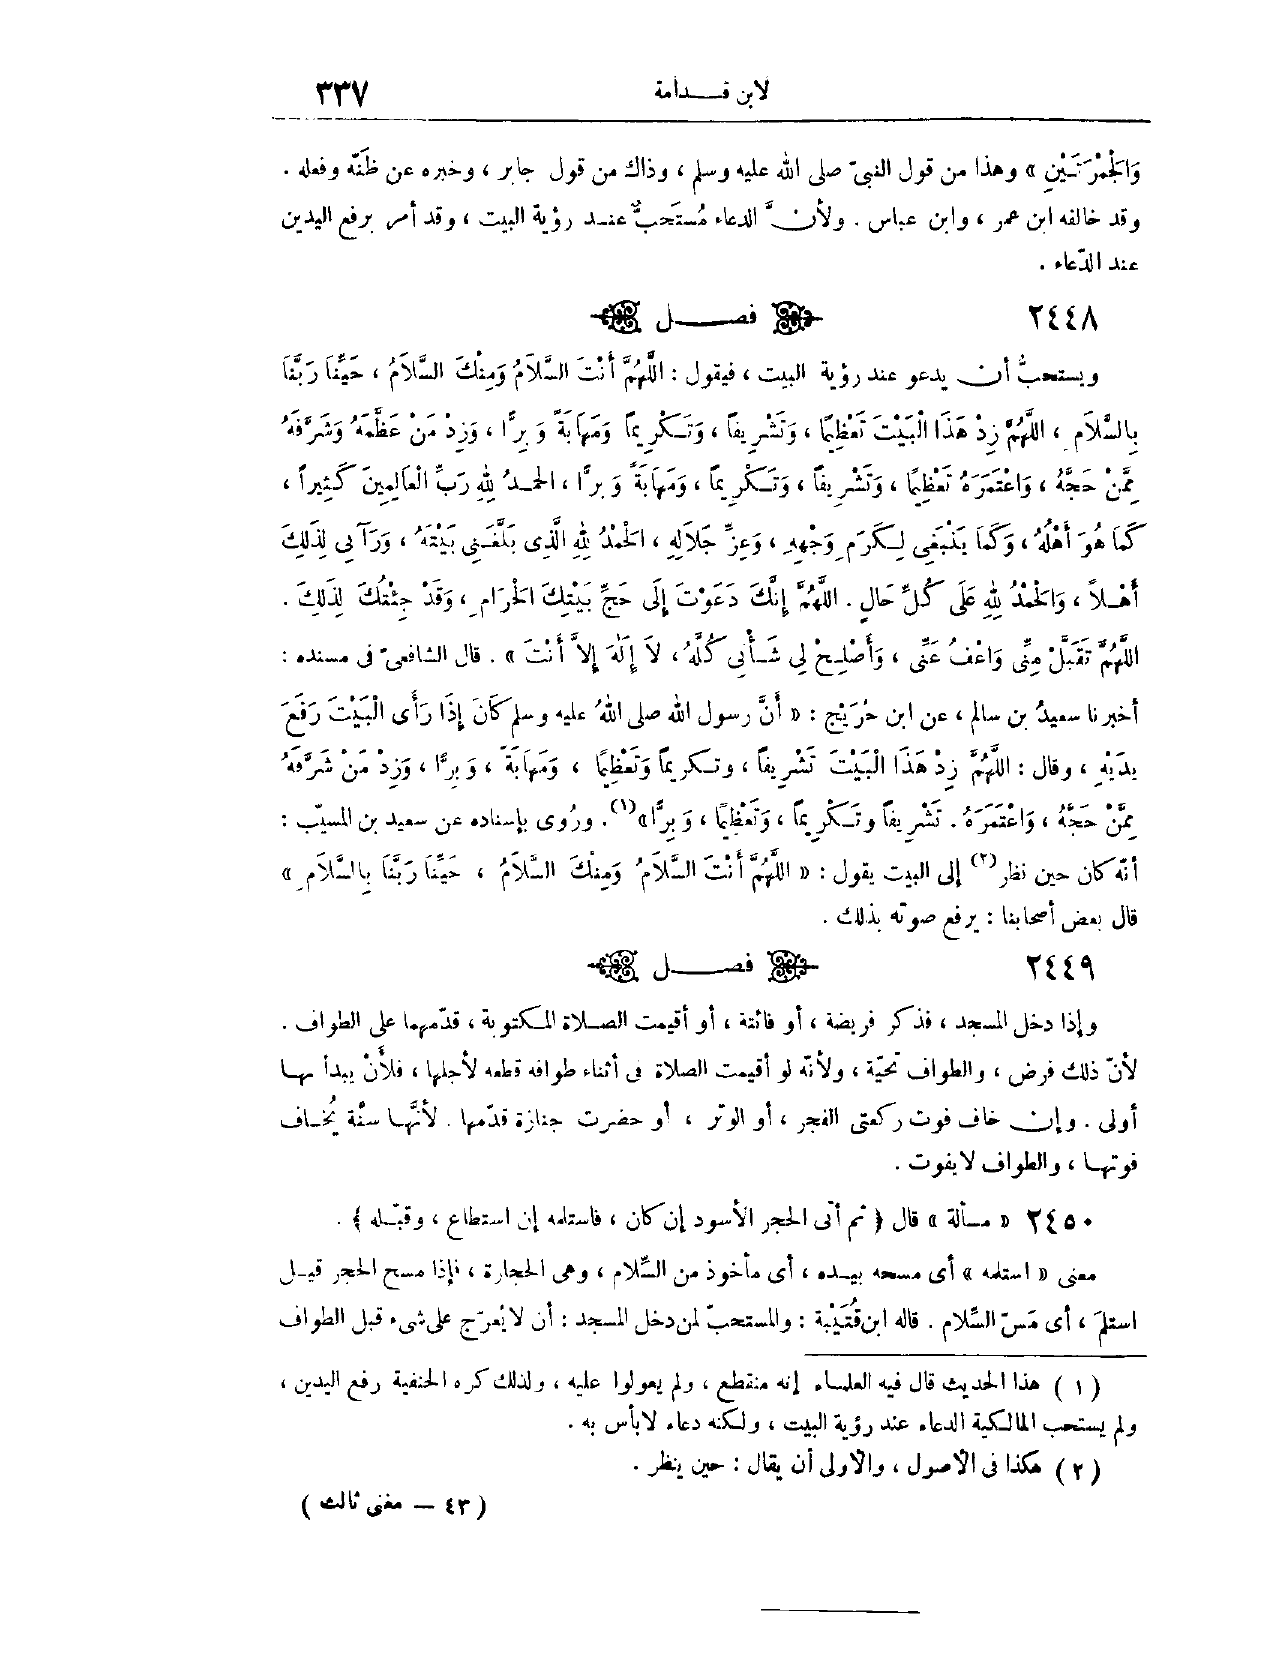 لابن قدامة ٣٣٧
وَالْجَمْرَتَيْنِ » وهذا من قول النبىّ صلى الله عليه وسلم ، وذاك من قول جابر ، وخبره عن ظَنّه وفعله .
وقد خالفه ابن عمر ، وابن عباس . ولأنَّ الدعاء مُستَحبٌّ عند رؤية البيت ، وقد أمر برفع اليدين
عند الدّعاء .
٢٤٤٨ فصل
ويستحبُّ أن يدعو عند رؤية البيت ، فيقول : اللَّهُمَّ أَنْتَ السَّلاَمُ وَمِنْكَ السَّلاَمُ ، حَيِّنَا رَبَّنَا
بِالسَّلاَمِ ، اللَّهُمَّ زِدْ هَذَا الْبَيْتَ تَعْظِيمًا ، وَتَشْرِيفاً ، وَتَكْرِيماً وَمَهَابَةً وَبِرًّا ، وَزِدْ مَنْ عَظَّمَهُ وَشَرَّفَهُ
مِمَّنْ حَجَّهُ ، وَاعْتَمَرَهُ تَعْظِيمًا ، وَتَشْرِيفاً ، وَتَكْرِيمًا ، وَمَهَابَةً وَبِرًّا ، الحمدُ لِلهِ رَبِّ الْعَالَمِينَ كَثِيراً ،
كَمَا هُوَ أَهْلُهُ ، وَكَمَا يَنْبَغِى لِكَرَمِ وَجْهِهِ ، وَعِزِّ جَلاَلِهِ ، الْحَمْدُ لِلهِ الَّذِى بَلَّغَنِى بَيْتَهُ ، وَرَآنِى لِذَلِكَ
أَهْلاً ، وَالْحَمْدُ لِلهِ عَلَى كُلِّ حَالٍ . اللَّهُمَّ إِنَّكَ دَعَوْتَ إِلَى حَجِّ بَيْتِكَ الْحَرَامِ ، وَقَدْ جِئْتُكَ لِذَلِكَ .
اللَّهُمَّ تَقَبَّلْ مِنِّى وَاعْفُ عَنِّى ، وَأَصْلِحْ لِى شَأْنِى كُلَّهُ ، لاَ إِلَهَ إِلاَّ أَنْتَ » . قال الشافعىّ فى مسنده :
أخبرنا سعيدُ بن سالم ، عن ابن جُرَيْج : « أَنَّ رسول الله صلى اللهُ عليه وسلم كَانَ إِذَا رَأَى الْبَيْتَ رَفَعَ
يَدَيْهِ ، وقال : اللَّهُمَّ زِدْ هَذَا الْبَيْتَ تَشْرِيفاً ، وتكريماً وَتَعْظِيمًا ، وَمَهَابَةً ، وَبِرًّا ، وَزِدْ مَنْ شَرَّفَهُ
مِمَّنْ حَجَّهُ ، وَاعْتَمَرَهُ . تَشْرِيفاً وتَكْرِيمًا ، وَتَعْظِيمًا ، وَبِرًّا »(١) . ورُوى بإسناده عن سعيد بن المسيّب :
أنّه كان حين نظر (٢) إلى البيت يقول : « اللَّهُمَّ أَنْتَ السَّلاَمُ وَمِنْكَ السَّلاَمُ ، حَيِّنَا رَبَّنَا بِالسَّلاَمِ »
قال بعض أصحابنا : يرفع صوته بذلك .
٢٤٤٩ فصل
وإذا دخل المسجد ، فذكر فريضة ، أو فائتة ، أو أقيمت الصلاة المكتوبة ، قدّمهما على الطواف .
لأنّ ذلك فرض ، والطواف تحيّة ، ولأنّه لو أقيمت الصلاة فى أثناء طوافه قطعه لأجلها ، فلأنْ يبدأ بها
أولى . وإن خاف فوت ركعتى الفجر ، أو الوتر ، أو حضرت جنازة قدّمها . لأنَّها سنَّة يُخاف
فوتها ، والطواف لا يفوت .
٢٤٥٠ « مسألة » قال ﴿ ثم أتى الحجر الأسود إن كان ، فاستلمه إن استطاع ، وقبّله ﴾ .
معنى « استلمه » أى مسحه بيده ، أى مأخوذ من السِّلام ، وهى الحجارة ، فإذا مسح الحجر قيل
استلم ، أى مَسّ السِّلام . قاله ابن قُتَيْبة : والمستحبّ لمن دخل المسجد : أن لا يُعرّج على شىء قبل الطواف
( ١ ) هذا الحديث قال فيه العلماء إنه منقطع ، ولم يعولوا عليه ، ولذلك كره الحنفية رفع اليدين ،
ولم يستحب المالكية الدعاء عند رؤية البيت ، ولكنه دعاء لا بأس به .
( ٢ ) هكذا فى الأصول ، والأولى أن يقال : حين ينظر .
( ٤٣ — مغنى ثالث )